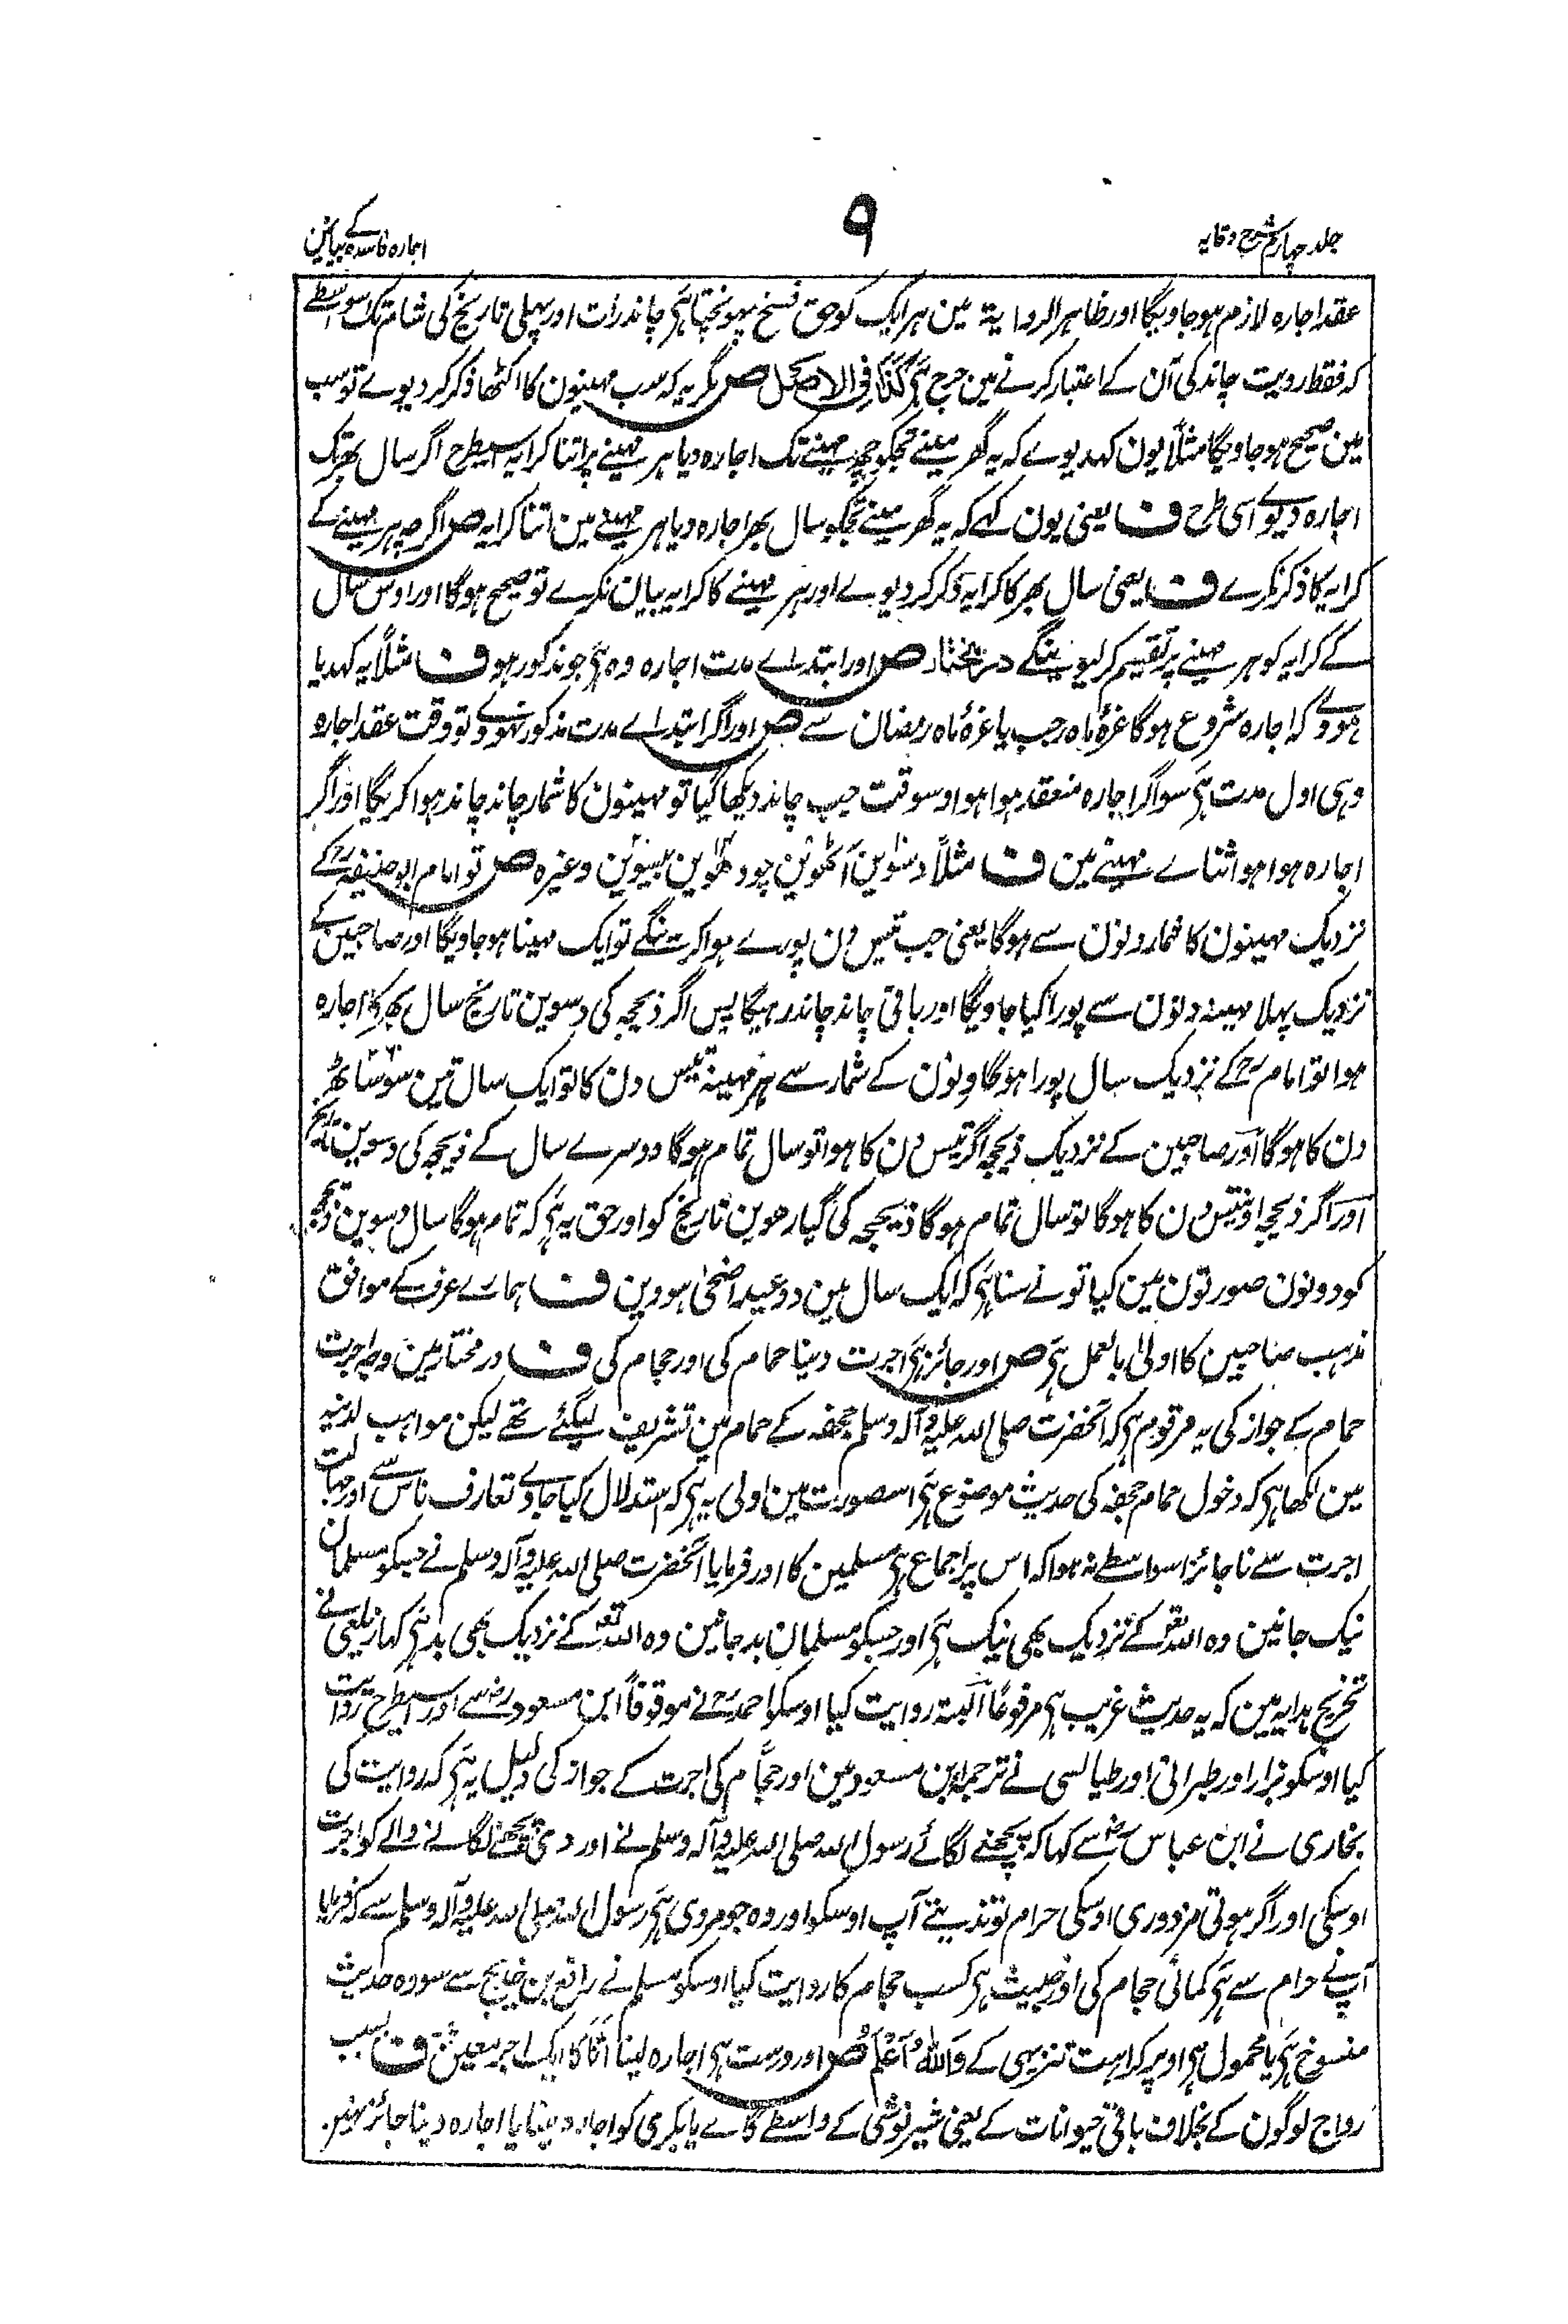 جلد چہارم شرح وقایہ
۹
اجارہ فاسدہ کے بیان مین
عقد اجارہ لازم ہوجاویگا اور ظاہر الروایۃ مین ہر ایک کو حق فسخ پہونچتا ہی چاند رات اور پہلی تاریخ کی شام تک اسواسطے
کہ فقط رویت چاند کی آن کے اعتبار کرنے مین حرج ہی کذا فی الاصل ص مگر یہ کہ سب مہینون کا اکٹھا ذکر کر دیوے تو سب
مین صحیح ہوجاویگا مثلاً یون کہدیوے کہ یہ گھر مینے تجکو چھ مہینے تک اجارہ دیا ہر مہینے پر اتنا کرایہ اسیطرح اگر سال بھر تک
اجارہ دیوے اسی طرح ف یعنی یون کہے کہ یہ گھر مینے تجکو سال بھر اجارہ دیا ہر مہینے مین اتنا کرایہ ص اگرچہ ہر مہینے کے
کرایہ کا ذکر نکرے ف یعنی سال بھر کا کرایہ ذکر کر دیوے اور ہر مہینے کا کرایہ بیان نکرے تو صحیح ہوگا اور اوس سال
کے کرایہ کو ہر مہینے پر تقسیم کر لیوینگے درمختار ص اور ابتداے مدت اجارہ وہ ہی جو مذکور ہو ف مثلاً یہ کہدیا
ہووے کہ اجارہ شروع ہوگا غرۂ ماہ رجب یا غرۂ ماہ رمضان سے ص اور اگر ابتداے مدت مذکور نہووے تو وقت عقد اجارہ
وہی اول مدت ہی سو اگر اجارہ منعقد ہوا ہو اوسوقت جب چاند دیکھا گیا تو مہینون کا شمار چاند چاند ہوا کریگا اور اگر
اجارہ ہوا ہو اثناے مہینے مین ف مثلاً دسوین آٹھوین چودھوین بیسوین وغیرہ ص تو امام ابو حنیفہ رح کے
نزدیک مہینون کا شمار دنون سے ہوگا یعنی جب تیس دن پورے ہوا کرینگے تو ایک مہینا ہوجاویگا اور صاحبین کے
نزدیک پہلا مہینہ دنون سے پورا کیا جاویگا اور باقی چاند چاند رہیگا پس اگر ذیحجہ کی دسوین تاریخ سال بھر کا اجارہ
ہوا تو امام رح کے نزدیک سال پورا ہوگا دنون کے شمار سے ہر مہینہ تیس دن کا تو ایک سال تین سو ساٹھ
دن کا ہوگا اور صاحبین کے نزدیک ذیحجہ اگر تیس دن کا ہوا تو سال تمام ہوگا دوسرے سال کے ذیحجہ کی دسوین تاریخ
اور اگر ذیحجہ اونتیس دن کا ہوگا تو سال تمام ہوگا ذیحجہ کی گیارھوین تاریخ کو اور حق یہ ہی کہ تمام ہوگا سال دسوین ذیحجہ
کو دونون صورتون مین کیا تو نے سنا ہی کہ ایک سال مین دو عید اضحیٰ ہووین ف ہمارے عرف کے موافق
مذہب صاحبین کا اولیٰ بالعمل ہی ص اور جائز ہی اجرت دینا حمام کی اور حجام کی ف درمختار مین وجہ اجرت
حمام کے جواز کی یہ مرقوم ہی کہ آنحضرت صلی اللہ علیہ وآلہ وسلم جحفہ کے حمام مین تشریف لیگئے تھے لیکن مواہب لدنیہ
مین لکھا ہی کہ دخول حمام جحفہ کی حدیث موضوع ہی اسصورت مین اولی یہ ہی کہ استدلال کیا جاوے تعارف ناس سے اور جہالت
اجرت سے ناجائز اسواسطے نہ ہوا کہ اس پر اجماع ہی مسلمین کا اور فرمایا آنحضرت صلی اللہ علیہ وآلہ وسلم نے جسکو مسلمان
نیک جانین وہ اللہ تعہ کے نزدیک بھی نیک ہی اور جسکو مسلمان بد جانین وہ اللہ تعہ کے نزدیک بھی بد ہی کہا زیلعی نے
تخریج ہدایہ مین کہ یہ حدیث غریب ہی مرفوعاً البتہ روایت کیا اوسکو احمد رح نے موقوفاً ابن مسعود رض سے اور اسیطرح روایت
کیا اوسکو بزار اور طبرانی اور طیالسی نے ترجمہ ابن مسعود مین اور حجّام کی اجرت کے جواز کی دلیل یہ ہی کہ روایت کی
بخاری نے ابن عباس رض سے کہا کہ پچھنے لگائے رسول اللہ صلی اللہ علیہ وآلہ وسلم نے اور دی پچھنے لگانے والے کو اجرت
اوسکی اور اگر ہوتی مزدوری اوسکی حرام تو ندیتے آپ اوسکو اور وہ جو مروی ہی رسول اللہ صلی اللہ علیہ وآلہ وسلم سے کہ فرمایا
آپ نے حرام سے ہی کمائی حجام کی اور خبیث ہی کسب حجام کا روایت کیا اوسکو مسلم نے رافع بن خدیج سے سو وہ حدیث
منسوخ ہی یا محمول ہی اوپر کراہت تنزیہی کے وَاللّٰہُ اَعْلَمُ ص اور درست ہی اجارہ لینا انّا کا ایک اجر معین پر ف بسبب
رواج لوگون کے بخلاف باقی حیوانات کے یعنی شیر نوشی کے واسطے گاے یا بکری کو اجارہ لینا یا اجارہ دینا جائز نہین.